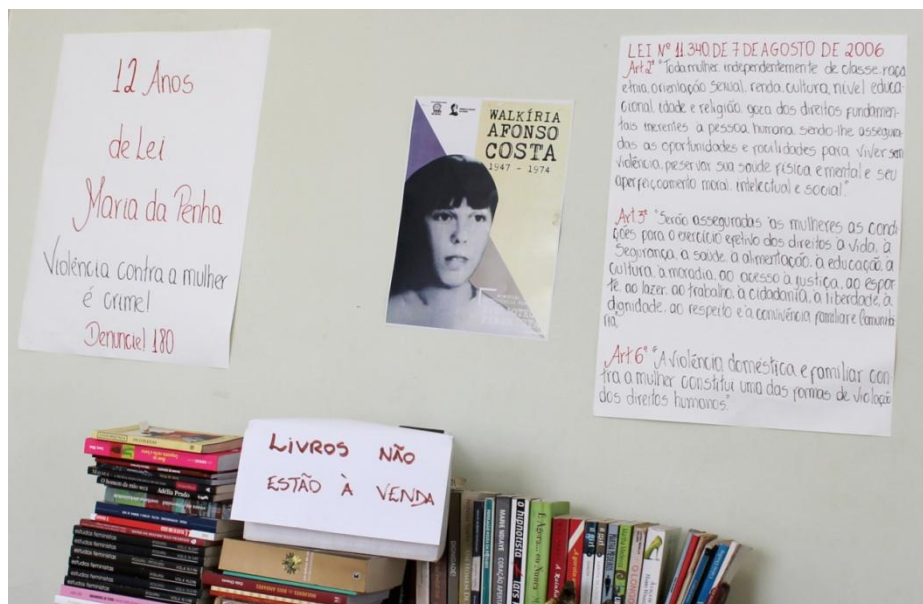 12 Anos
de Lei
Maria da Penha
Violência contra a mulher
é crime!
Denuncie! 180
WALKÍRIA
AFONSO
COSTA
1947 - 1974
LEI Nº 11.340 DE 7 DE AGOSTO DE 2006
Art 2º "Toda mulher, independentemente de classe, raça
etnia, orientação sexual, renda, cultura, nível educa-
cional, idade e religião, goza dos direitos fundamen-
tais inerentes à pessoa humana, sendo-lhe assegura-
das as oportunidades e facilidades para viver sem
violência, preservar sua saúde física e mental e seu
aperfeiçoamento moral, intelectual e social."
Art 3º "Serão asseguradas às mulheres as condi-
ções para o exercício efetivo dos direitos à vida, à
segurança, à saúde, à alimentação, à educação, à
cultura, à moradia, ao acesso à justiça, ao espor-
te, ao lazer, ao trabalho, à cidadania, à liberdade, à
dignidade, ao respeito e à convivência familiar e comunitá-
ria."
Art 6º "A violência doméstica e familiar con-
tra a mulher constitui uma das formas de violação
dos direitos humanos."
LIVROS NÃO
ESTÃO À VENDA
O homem da mão seca Adélia Prado
estudos feministas
estudos feministas
estudos feministas
estudos feministas
MARIE NDIAYE CORAÇÃO APERTADO
o hipnotista